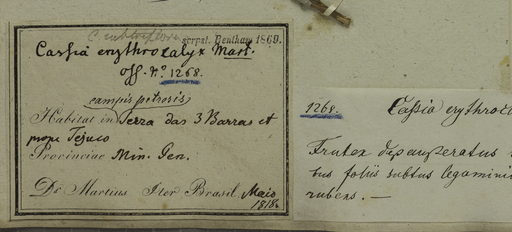 C. subtriflora
scrpsit. Bentham 1869.
Cassia erythrocalyx Mart.
off. No. 1268.
campis petrosis
Habitat in Serra das 3 Barras et
prope Tejuco
Provinciae Min. Gen.
Dr. Martius Iter Brasil. Maio
1818.
1268. Cassia erythroc
Frutex depauperatus
tus foliis subtus legamini
rubens. —